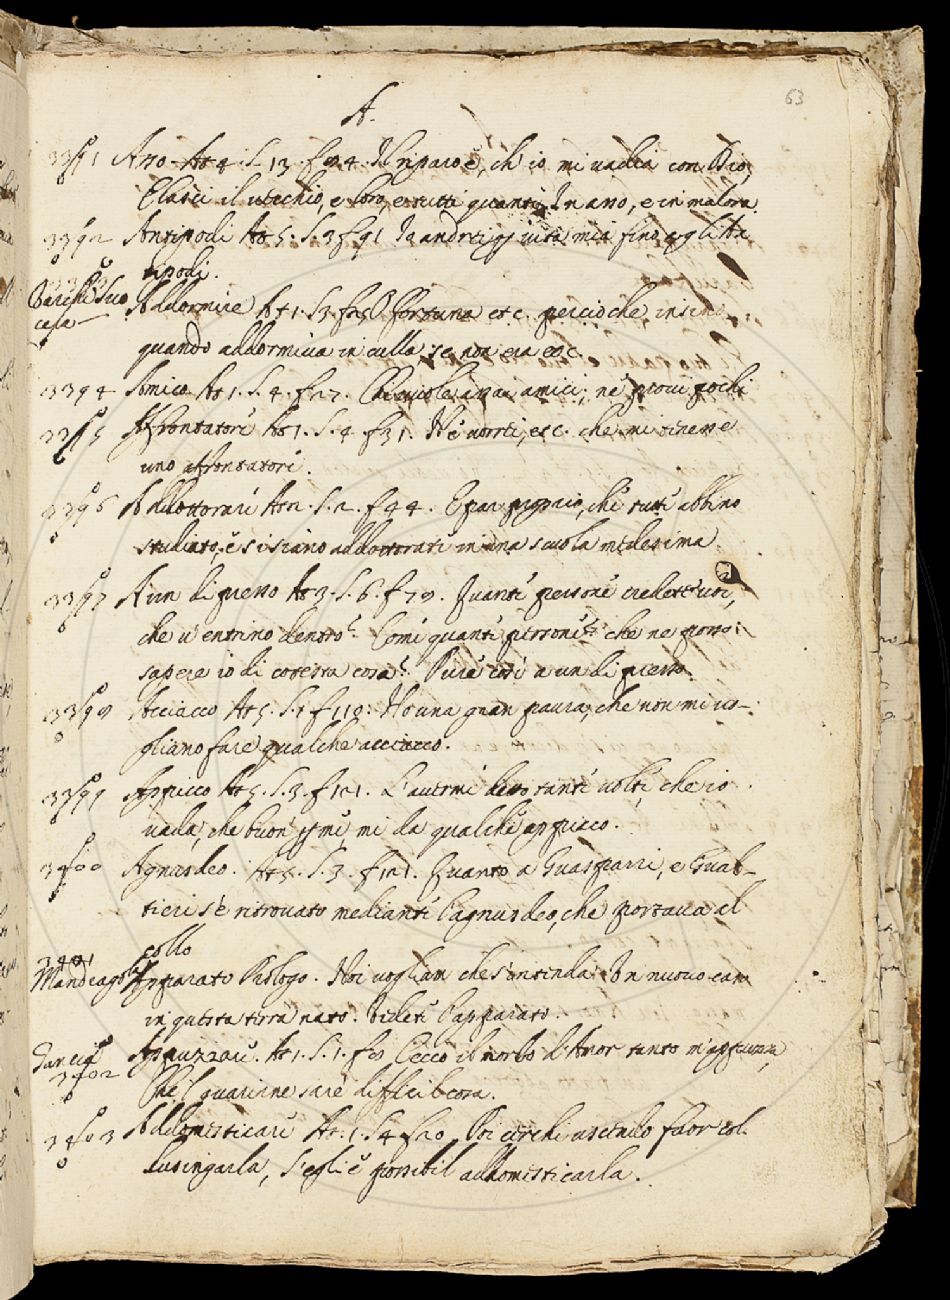 63
A.
3391 Ano. At 4. S. 13. f 94. Il riparo è, ch' io mi vadia con Dio,
e lasci il vecchio, e loro, e tutti quanti In ano, e in malora.
3392 Antipodi At 5. S. 3 f 91 Io andrei vita mia fino agli An
tipodi.
Addormire At 1. S. 3. Fortuna etc. perciochè insino
quando addormiva in culla se non era ec.
3394 Amico At 1. S. 4. f 27. Chi vuole assai amici, ne provi pochi
Affrontatori At 1. S. 4. f 31. Nè vorrei, etc. che mi tinesse
uno afrontatori.
3396 Addottorari At 2. S. 2. f 44. E par proprio, che tutti abbino
studiato, e si siano addottorati in una scuola medesima.
3397 A un di presso At 3. S. 6. f 79. Quanti persone credette voi,
che v' entrino dentro? Comi quanti persone? che ne posso
sapere io di cotesta cosa? Pure così a un di presso.
Acciacco At 5. S. 1 f 110. Ho una gran paura, che non mi vo-
gliano fare qualche acciacco.
3399 Appicco At 5. S. 3. f 121. L'avermi detto tanti volti, che io
vada, che buon mi, mi da qualche appicco.
3400 Agnusdeo. At 5. S. 3. f 121. Quanto a Guasparri, e Gual-
tieri s'è ritrovato medianti l'agnusdeo, che portava al
collo
3401
Mandragola Apparato Prologo. Noi voglian che s'intenda Un nuovo caso
in questa terra nato. Vedeti l'apparato.
3402 Appuzzari. At 1. S. 1. Cecco il morbo d'Amor tanto m'appuzza,
Che'l guarirne sarè difficil cosa.
3403 Addomesticari At. 1. S 4 f 20 Poi cerchi uscendo fuor col
Lusingarla, s'egli è possibil addomesticarla.